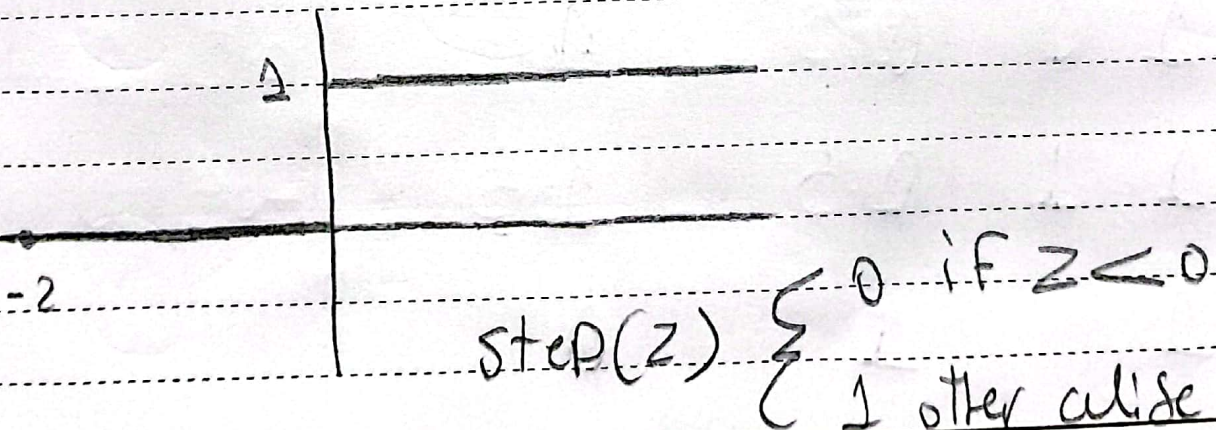 1
-2
step(z) { 0 if z < 0
1 other